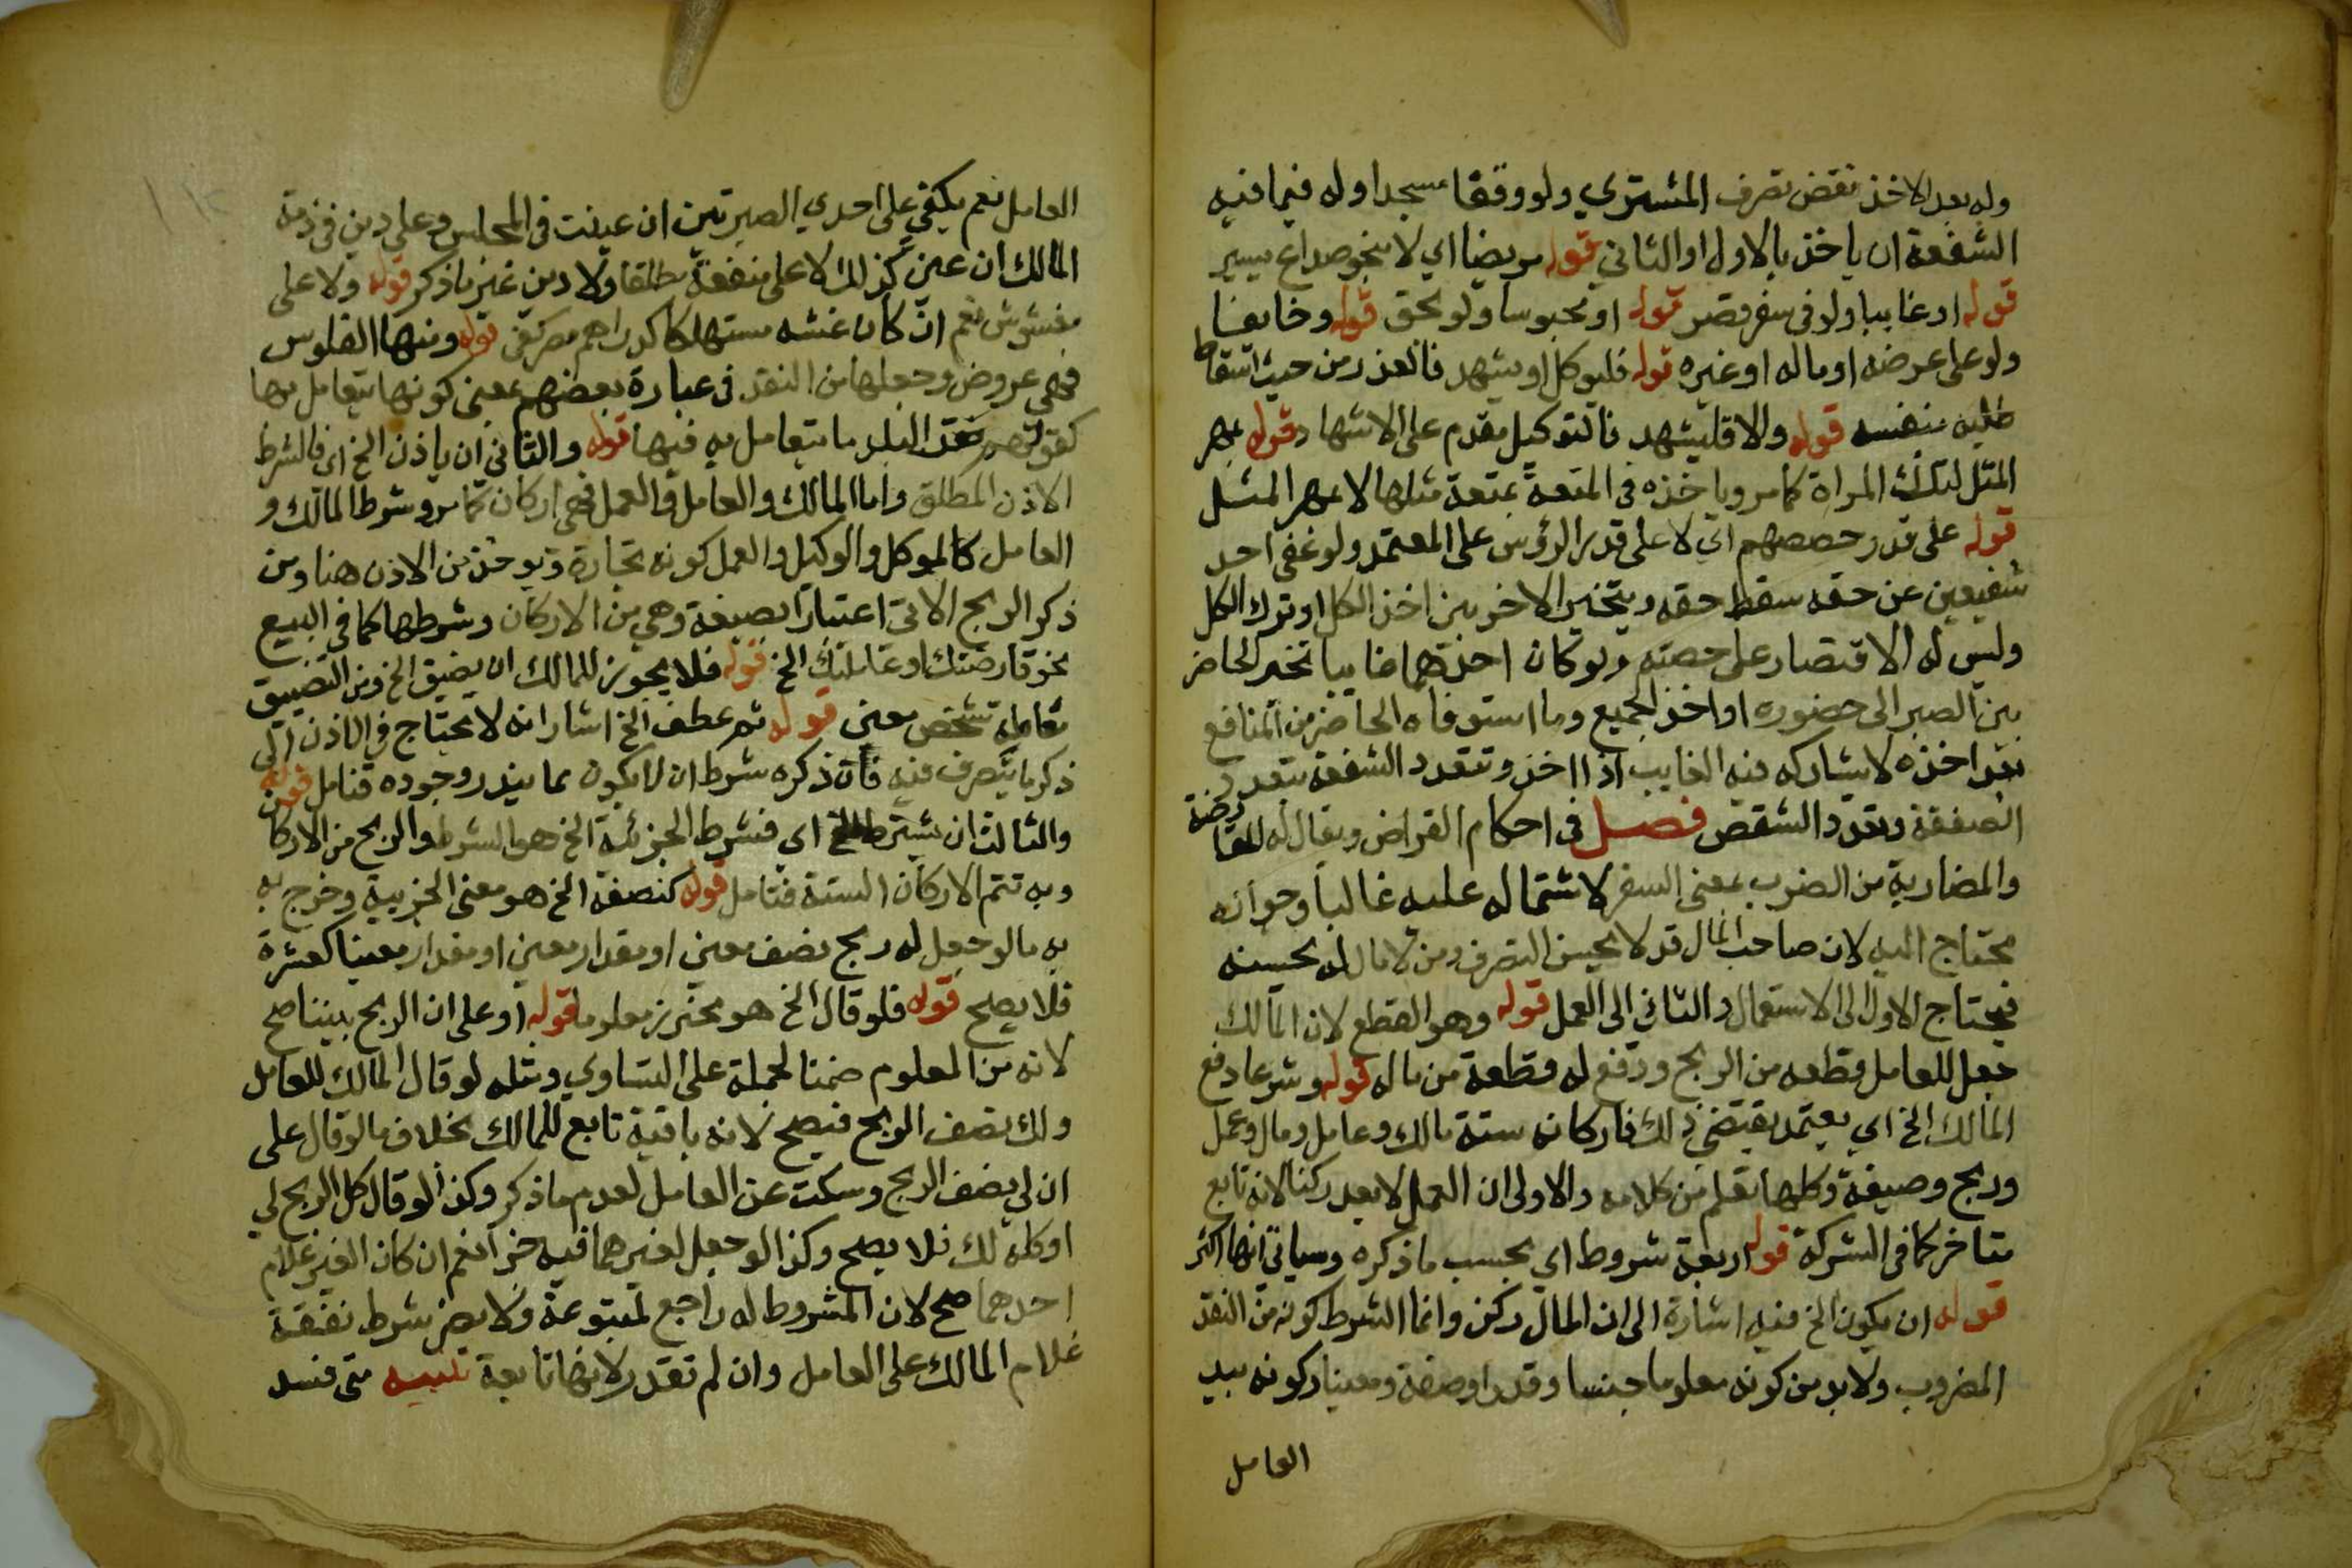 وله بعد الاخذ نقض تصرف المشتري ولو وقفا مسجدا وله فيما فيه
الشفعة ان ياخذ بالاول او الثاني قوله مريضا اي لا بنحو صداع يسير
قوله او غايبا ولو في سفر قصر قوله او محبوسا ولو بحق قوله وخايفا
ولو على عرضه او ماله او غيره قوله فليوكل او يشهد فالعذر من حيث اسقاط
طلبه بنفسه قوله والا فليشهد فالتوكيل مقدم على الاشهاد قوله بمهر
المثل لتلك المراة كما مر وياخذه في المتعة بمتعة مثلها لا بمهر المثل
قوله على قدر حصصهم اي لا على قدر الرؤس على المعتمد ولو عفى احد
شفيعين عن حقه سقط حقه ويتخير الاخر بين اخذ الكل او ترك الكل
وليس له الاقتصار على حصته ولو كان احدهما غايبا تخير الحاضر
بين الصبر الى حضوره او اخذ الجميع وما استوفاه الحاضر من المنافع
بعد اخذه لا يشاركه فيه الغايب اذا اخذ وتتعدد الشفعة بتعدد
الصفقة وبعدد الشقص فصل في احكام القراض ويقال له المقارضة
والمضاربة من الضرب بمعنى السفر لاشتماله عليه غالبا وجوازه
محتاج اليه لان صاحب المال قد لا يحسن التصرف ومن لا مال له يحسنه
فيحتاج الاول الى الاستعمال والثاني الى العمل قوله وهو القطع لان المالك
جعل للعامل قطعه من الربح ودفع له قطعة من ماله قوله وشرعا دفع
المالك الخ اي بعقد يقتضي ذلك فاركانه ستة مالك وعامل ومال وعمل
وربح وصيغة وكلها تعلم من كلامه والاولى ان العمل لا يعد ركنا لانه تابع
متاخر كما في الشركة قوله اربعة شروط اي بحسب ما ذكره وسياتي انها اكثر
قوله ان يكون الخ فيه اشارة الى ان المال ركن وانما الشرط كونه من النقد
المضروب ولا بد من كونه معلوما جنسا وقدرا وصفة ومعينا وكونه بيد
العامل
العامل نعم يكفي على احدي الصرتين ان عينت في المجلس وعلى دين في ذمة
المالك ان عين كذلك لا على منفعة مطلقا ولا دين غير ما ذكر قوله ولا على
مغشوش نعم ان كان غشه مستهلكا كدراهم مصر كفى قوله ومنها الفلوس
فهي عروض وجعلها من النقد في عبارة بعضهم بمعنى كونها يتعامل بها
كقولهم نقد البلد ما يتعامل به فيها قوله والثاني ان ياذن الخ اي فالشرط
الاذن المطلق واما المالك والعامل والعمل فهي اركان كما مر وشرط المالك و
العامل كالموكل والوكيل والعمل كونه تجارة ويوخذ من الاذن هنا ومن
ذكر الربح الاتي اعتبار الصيغة وهي من الاركان وشرطها كما في البيع
نحو قارضتك او عاملتك الخ قوله فلا يجوز للمالك ان يضيق الخ ومن التضييق
معاملة شخص معين قوله ثم عطف الخ اشار انه لا يحتاج في الاذن الى
ذكر ما يتصرف فيه فان ذكره شرط ان لا يكون مما يندر وجوده فتامل قوله
والثالث ان يشترط الخ اي فشرط الجزئية الخ هو الشرط والربح من الاركان
وبه تتم الاركان الستة فتامل قوله كنصفه الخ هو معنى الجزيية وخرج به
به ما لو جعل له ربح نصف معين او مقدار معين او مقدار معينا كعشرة
فلا يصلح قوله فلو قال الخ هو محترز معلوما قوله او على ان الربح بيننا صح
لانه من المعلوم ضمنا لحمله على التساوي ومثله لو قال المالك للعامل
ولك نصف الربح فيصح لانه باقيه تابع للمالك بخلاف ما لو قال على
ان لي نصف الربح وسكت عن العامل لعدم ما ذكر وكذا لو قال كل الربح لي
او كله لك فلا يصح وكذا لو جعل لغيرهما فيه جزا نعم ان كان الغير غلام
احدهما صح لان المشروط له راجع لمتبوعه ولا يضر شرط نفقة
غلام المالك على العامل وان لم تقدر لانها تابعة تنبيه متى فسد